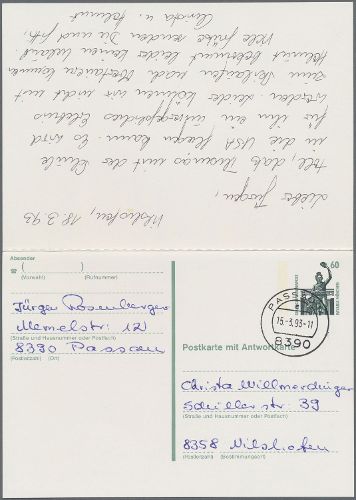 Vilshofen, 18.3.93
Lieber Jürgen,
toll, daß Thomas mit der Schule
in die USA fliegen kann. Es wird
für ihn ein unvergessliches Erlebnis
werden. Leider können wir nicht mit
zum Skilaufen nach Obertauern kommen.
Helmut bekommt leider keinen Urlaub.
Viele Grüße senden Dir und
Christa u. Helmut
Absender
☎ ( )
(Vorwahl) (Rufnummer)
Jürgen Rosenberger
Memelstr. 12
(Straße und Hausnummer oder Postfach)
8390 Passau
(Postleitzahl) (Ort)
60
PASSAU
15.-3.93-11
8390
Postkarte mit Antwortkarte
Christa Willmerdinger
Schillerstr. 39
(Straße und Hausnummer oder Postfach)
8358 Vilshofen
(Postleitzahl) (Bestimmungsort)